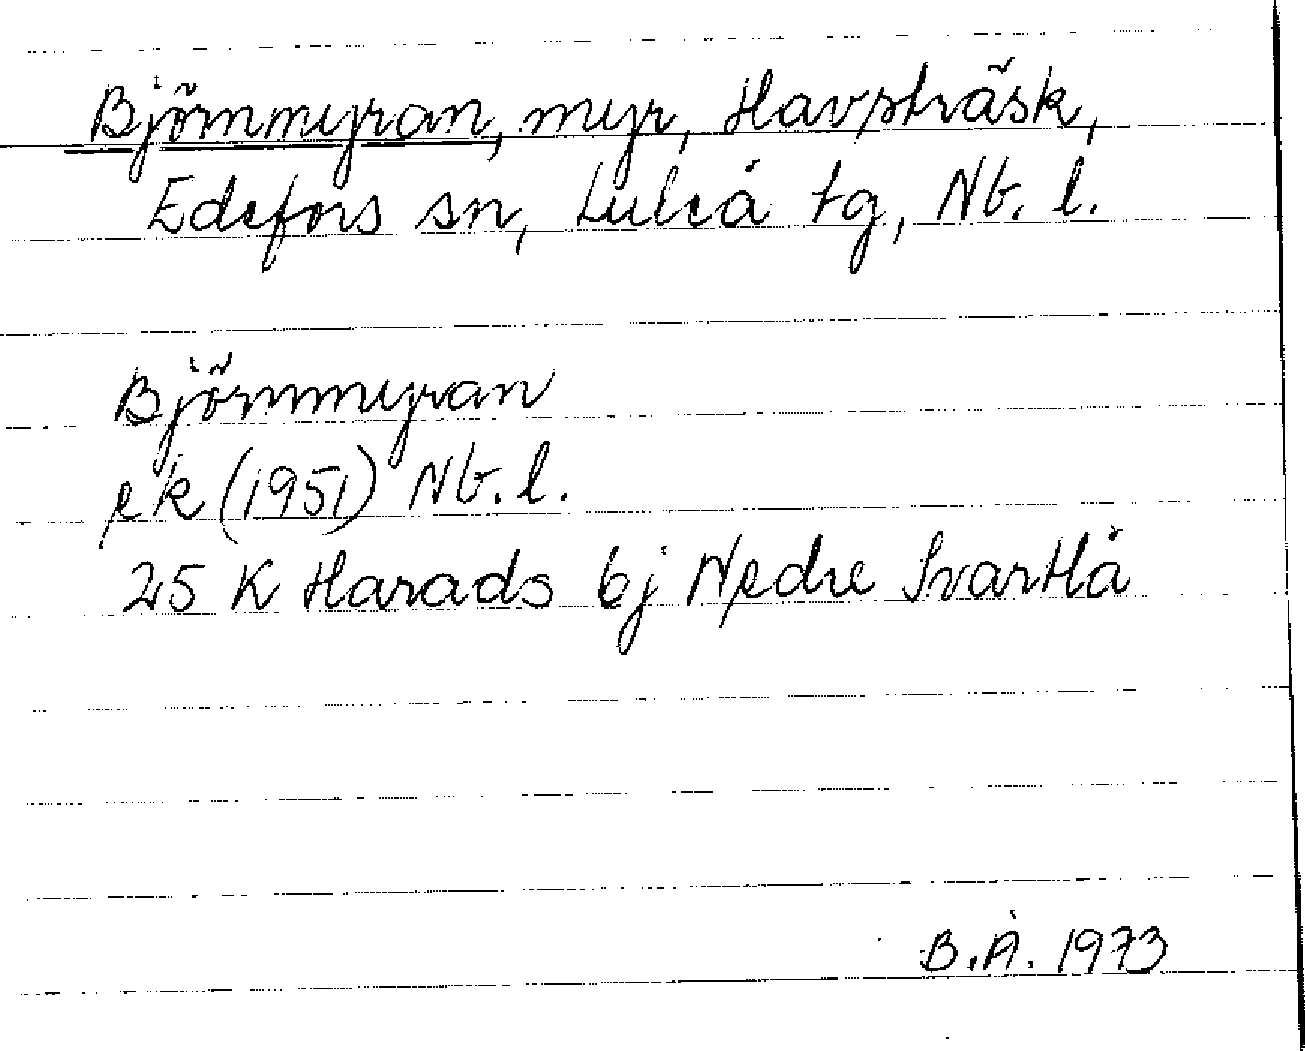 Björnmyran, myr, Havsträsk,
Edefors sn, Luleå tg, Nb. l.
Björnmyran
ek (1951) Nb. l.
25 K Harads bj Nedre Svartlå
B.Å. 1973